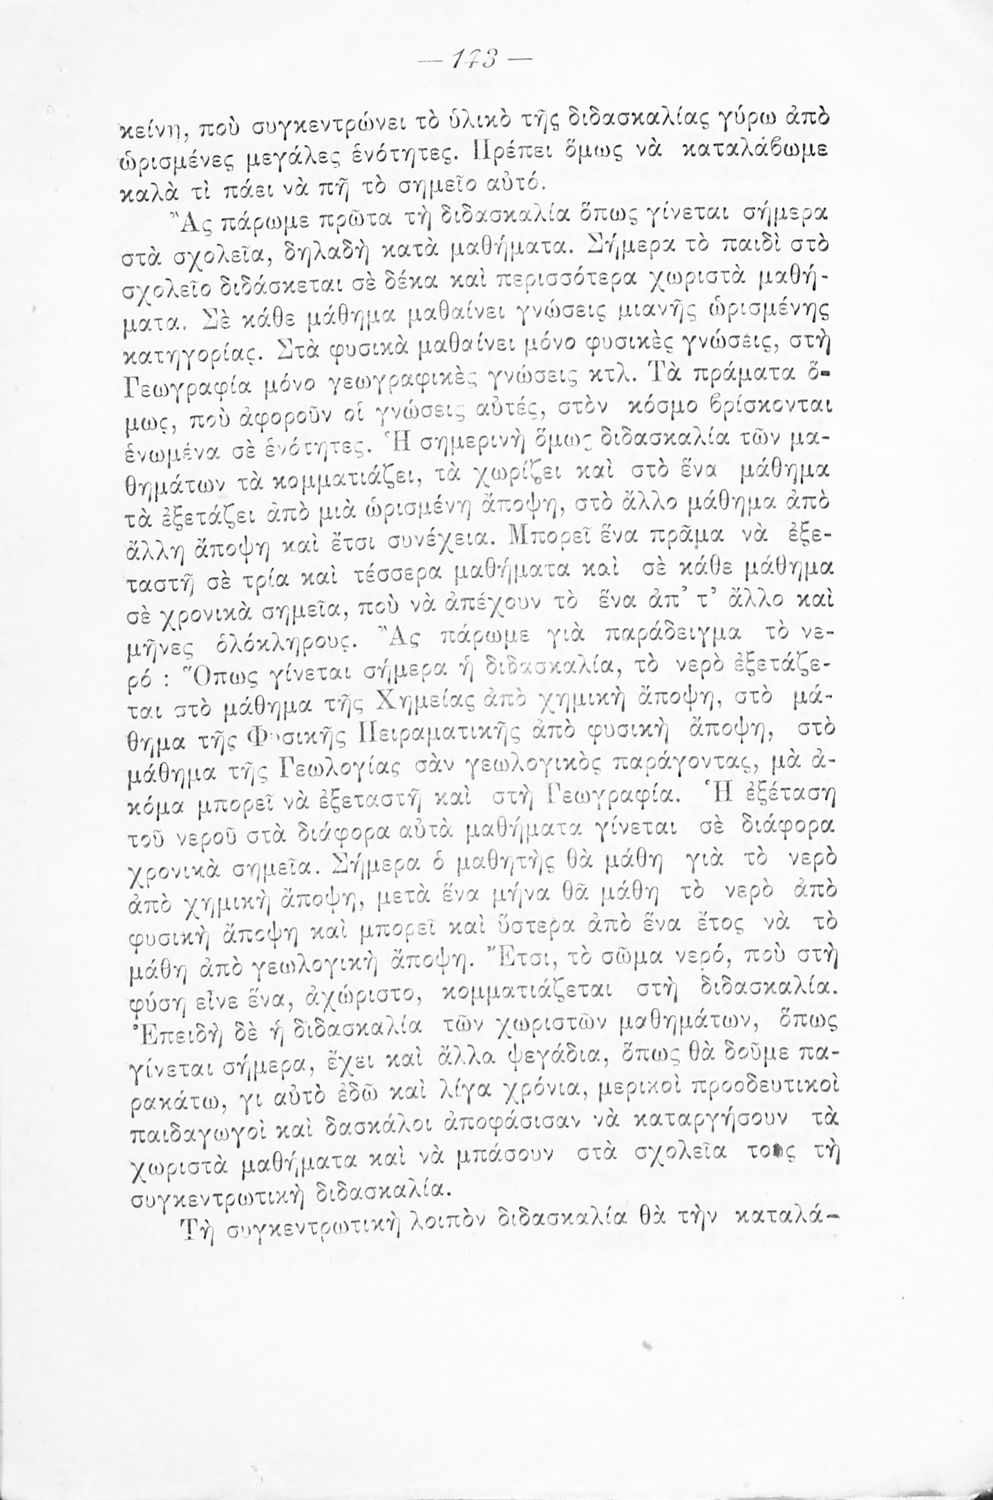 — 143 —
κείνη, ποὺ συγκεντρώνει τὸ ὑλικὸ τῆς διδασκαλίας γύρω ἀπὸ
ὡρισμένες μεγάλες ἑνότητες. Πρέπει ὅμως νὰ καταλάβωμε
καλὰ τὶ πάει νὰ πῇ τὸ σημεῖο αὐτό.
Ἂς πάρωμε πρῶτα τὴ διδασκαλία ὅπως γίνεται σήμερα
στὰ σχολεῖα, δηλαδὴ κατὰ μαθήματα. Σήμερα τὸ παιδὶ στὸ
σχολεῖο διδάσκεται σὲ δέκα καὶ περισσότερα χωριστὰ μαθή-
ματα. Σὲ κάθε μάθημα μαθαίνει γνώσεις μιανῆς ὡρισμένης
κατηγορίας. Στὰ φυσικὰ μαθαίνει μόνο φυσικὲς γνώσεις, στὴ
Γεωγραφία μόνο γεωγραφικὲς γνώσεις κτλ. Τὰ πράματα ὅ-
μως, ποὺ ἀφοροῦν οἱ γνώσεις αὐτές, στὸν κόσμο βρίσκονται
ἑνωμένα σὲ ἑνότητες. Ἡ σημερινὴ ὅμως διδασκαλία τῶν μα-
θημάτων τὰ κομματιάζει, τὰ χωρίζει καὶ στὸ ἕνα μάθημα
τὰ ἐξετάζει ἀπὸ μιὰ ὡρισμένη ἄποψη, στὸ ἄλλο μάθημα ἀπὸ
ἄλλη ἄποψη καὶ ἔτσι συνέχεια. Μπορεῖ ἕνα πρᾶμα νὰ ἐξε-
ταστῇ σὲ τρία καὶ τέσσερα μαθήματα καὶ σὲ κάθε μάθημα
σὲ χρονικὰ σημεῖα, ποὺ νὰ ἀπέχουν τὸ ἕνα ἀπ’ τ’ ἄλλο καὶ
μῆνες ὁλόκληρους. Ἂς πάρωμε γιὰ παράδειγμα τὸ νε-
ρό : Ὅπως γίνεται σήμερα ἡ διδασκαλία, τὸ νερὸ ἐξετάζε-
ται στὸ μάθημα τῆς Χημείας ἀπὸ χημικὴ ἄποψη, στὸ μά-
θημα τῆς Φυσικῆς Πειραματικῆς ἀπὸ φυσικὴ ἄποψη, στὸ
μάθημα τῆς Γεωλογίας σὰν γεωλογικὸς παράγοντας, μὰ ἀ-
κόμα μπορεῖ νὰ ἐξεταστῇ καὶ στὴ Γεωγραφία. Ἡ ἐξέταση
τοῦ νεροῦ στὰ διάφορα αὐτὰ μαθήματα γίνεται σὲ διάφορα
χρονικὰ σημεῖα. Σήμερα ὁ μαθητὴς θὰ μάθη γιὰ τὸ νερὸ
ἀπὸ χημικὴ ἄποψη, μετὰ ἕνα μήνα θᾶ μάθη τὸ νερὸ ἀπὸ
φυσικὴ ἄποψη καὶ μπορεῖ καὶ ὕστερα ἀπὸ ἕνα ἔτος νὰ τὸ
μάθη ἀπὸ γεωλογικὴ ἄποψη. Ἔτσι, τὸ σῶμα νερό, ποὺ στὴ
φύση εἶνε ἕνα, ἀχώριστο, κομματιάζεται στὴ διδασκαλία.
Ἐπειδὴ δὲ ἡ διδασκαλία τῶν χωριστῶν μαθημάτων, ὅπως
γίνεται σήμερα, ἔχει καὶ ἄλλα ψεγάδια, ὅπως θὰ δοῦμε πα-
ρακάτω, γι αὐτὸ ἐδῶ καὶ λίγα χρόνια, μερικοὶ προοδευτικοὶ
παιδαγωγοὶ καὶ δασκάλοι ἀποφάσισαν νὰ καταργήσουν τὰ
χωριστὰ μαθήματα καὶ νὰ μπάσουν στὰ σχολεῖα τους τὴ
συγκεντρωτικὴ διδασκαλία.
Τὴ συγκεντρωτικὴ λοιπὸν διδασκαλία θὰ τὴν καταλά-